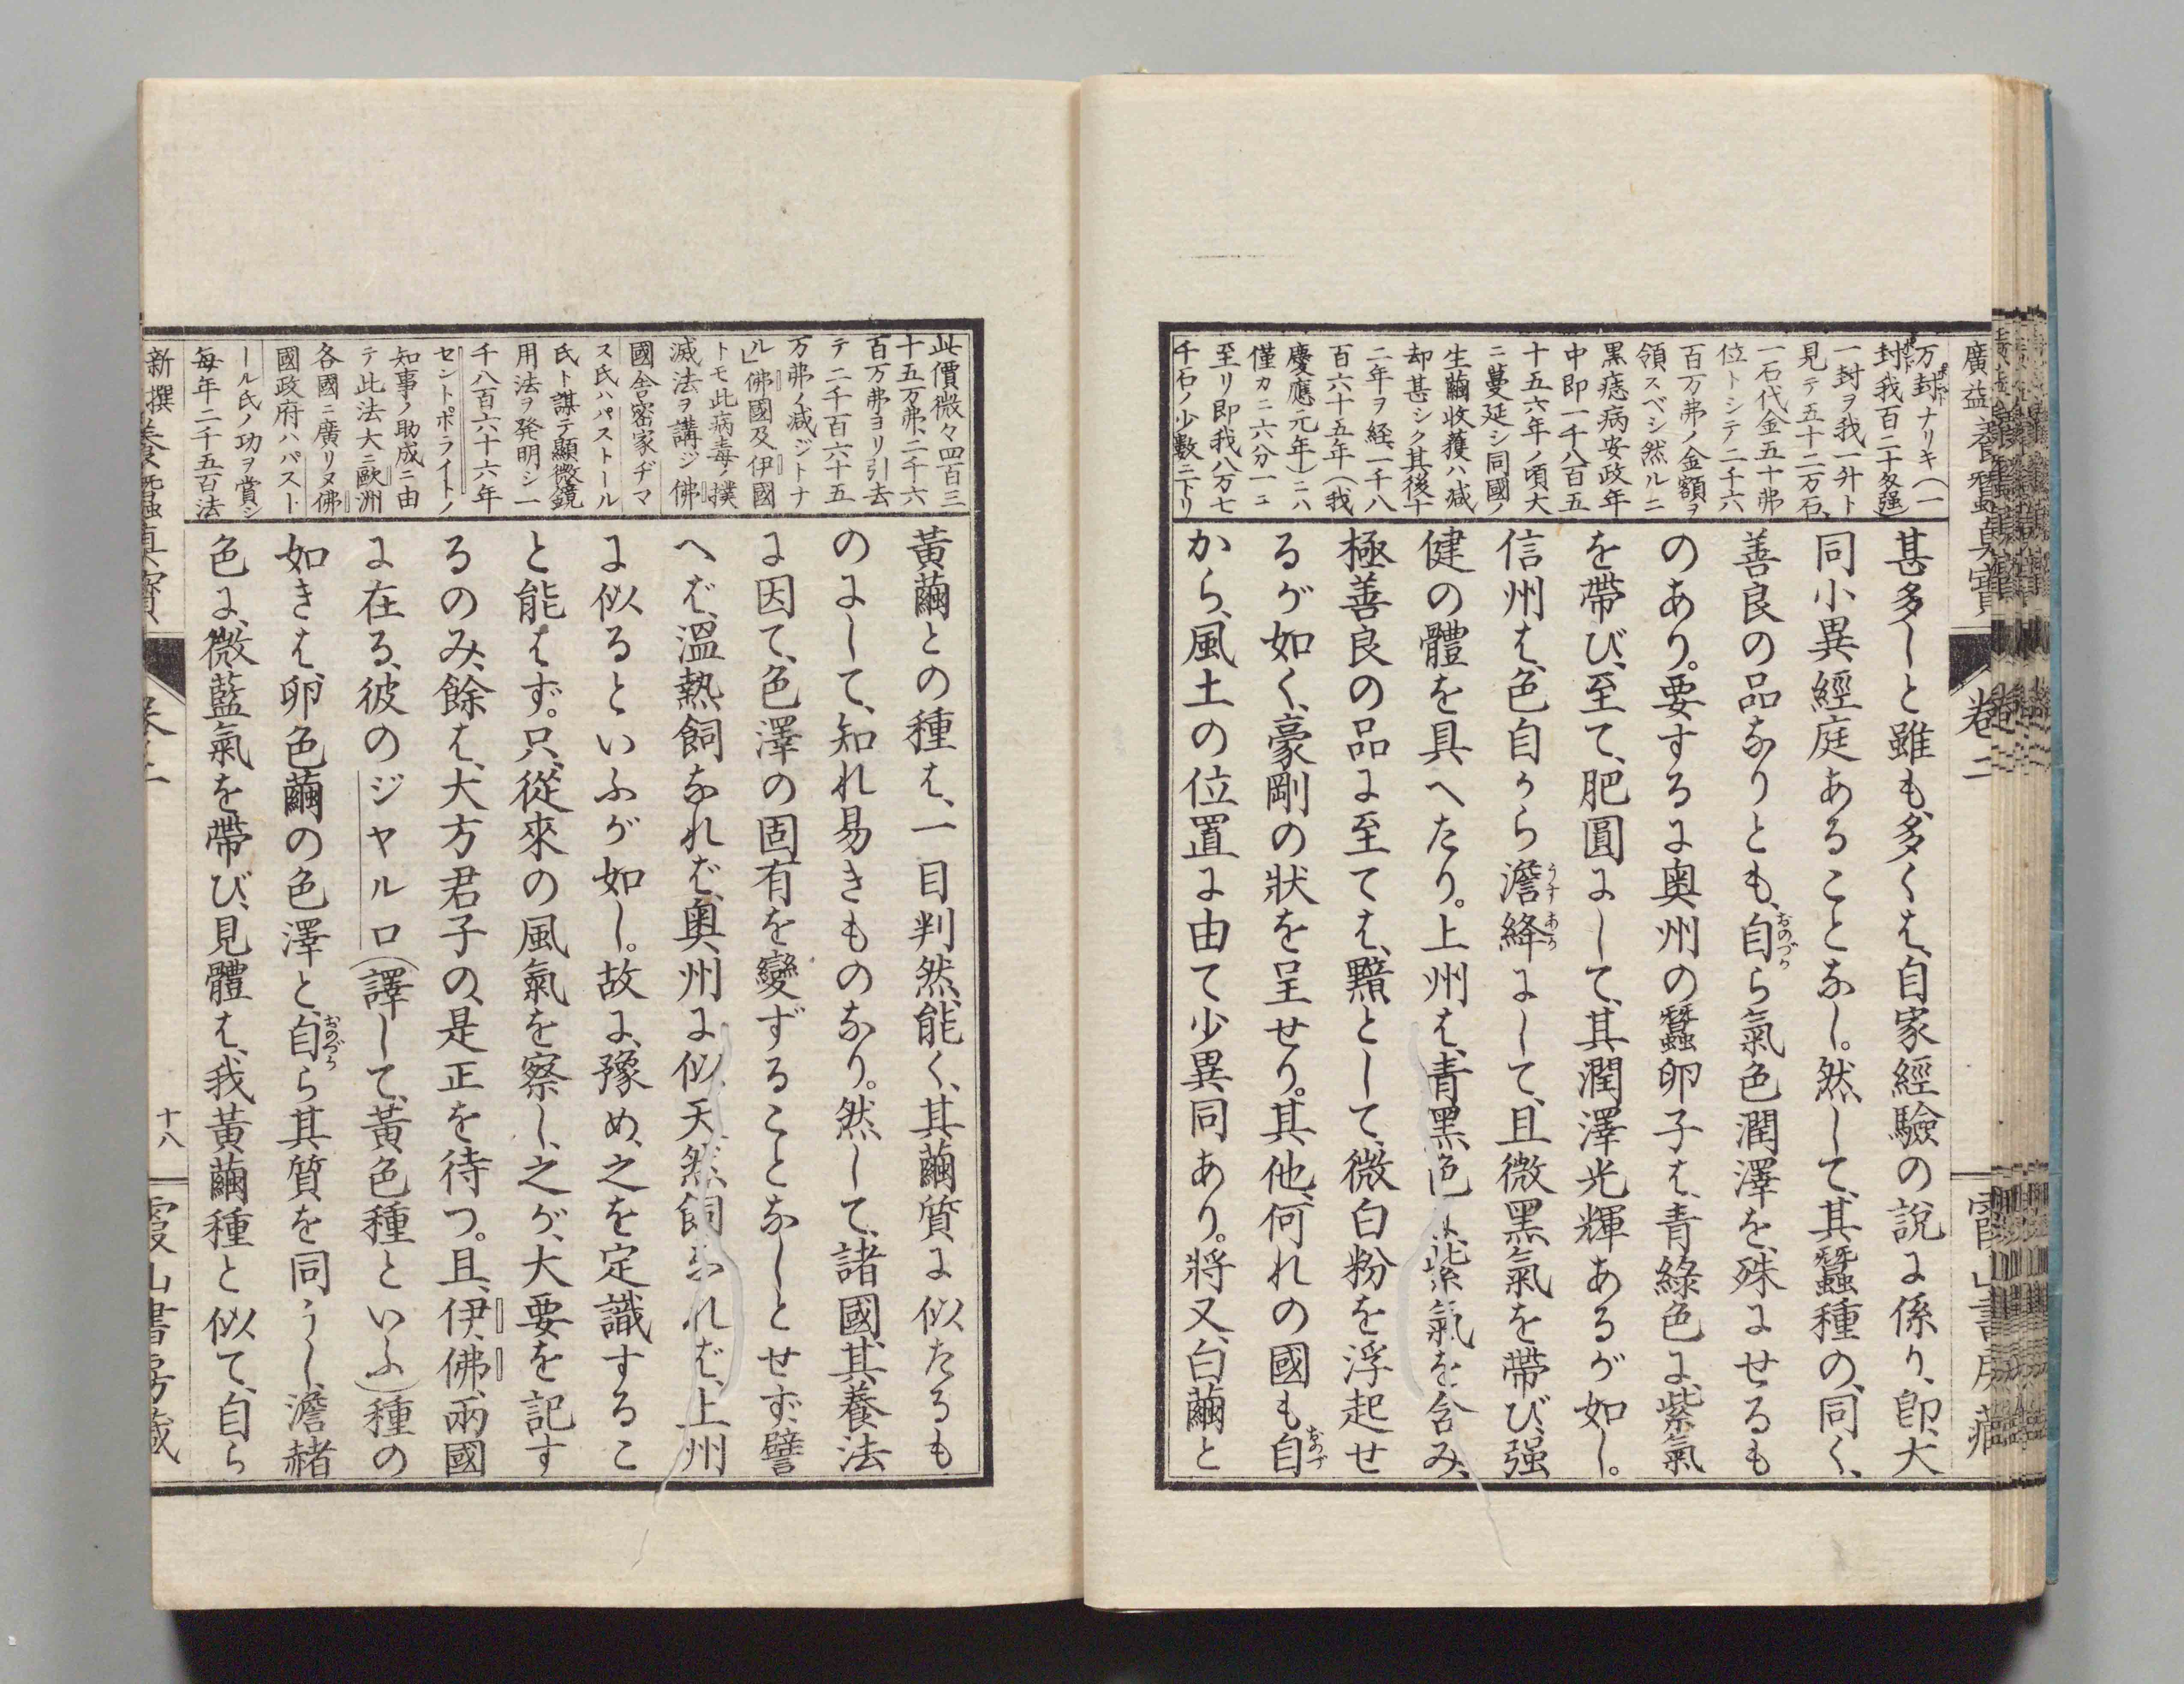 廣益養蠶眞寶
卷二
万封ナリキ（一
封我百二十匁强）
一封ヲ我一升ト
見テ五十二万石、
一石代金五十弗
位トシテ二千六
百万弗ノ金額ヲ
領スベシ然ルニ
黒痣病安政年
中即一千八百五
十五六年ノ頃大
ニ蔓延シ同國ノ
生繭收獲ハ减
却甚シク其後十
二年ヲ経、一千八
百六十五年（我
慶應元年）ニハ
僅カニ六分一ニ
至リ即我八万七
千石ノ少數ニ下リ
甚多しと雖も、多くは、自家經驗の說に係り、即、大
同小異經庭あることなし。然して、其蠶種の、同く、
善良の品なりとも、自ら氣色潤澤を、殊にせるも
のあり。要するに奥州の蠶卵子は、青綠色に、紫氣
を帶び、至て、肥圓にして、其潤澤光輝あるが如し。
信州は、色自から澹絳にして、且微黑氣を帶び、强
健の體を具へたり。上州は、青黑色に、紫氣を含み、
極善良の品に至ては、黯として、微白粉を浮起せ
るが如く、豪剛の狀を呈せり。其他、何れの國も自
から、風土の位置に由て少異同あり。將又、白繭と
此價微々四百三
十五万弗、二千六
百万弗ヨリ引去
テ二千百六十五
万弗ノ减ジトナ
ル」佛國及伊國
トモ此病毒ノ撲
滅法ヲ講ジ佛
國舎密家ヂマ
ス氏ハパストール
氏ト謀テ顯微鏡
用法ヲ発明シ一
千八百六十六年
セントポライトノ
知事ノ助成ニ由
テ此法大ニ歐洲
各國ニ廣リヌ佛
國政府ハパスト
ール氏ノ功ヲ賞シ
每年二千五百法
黃繭との種は、一目判然、能く、其繭質に似たるも
のにして、知れ易きものなり。然して、諸國、其養法
に因て、色澤の固有を變ずることなしとせず、譬
へば、溫熱飼なれば、奥州に似、天然飼なれば、上州
に似るといふが如し。故に、豫め、之を定識するこ
と能はず。只、從來の風氣を察し、之が、大要を記す
るのみ、餘は、大方君子の、是正を待つ。且、伊、佛、兩國
に在る、彼のジヤルロ（譯して、黃色種といふ）種の
如きは、卵色繭の色澤と、自ら其質を同うし、澹赭
色に、微藍氣を帶び、見體は、我黃繭種と似て、自ら
新撰養蠶眞寶
十八
霞山書房藏